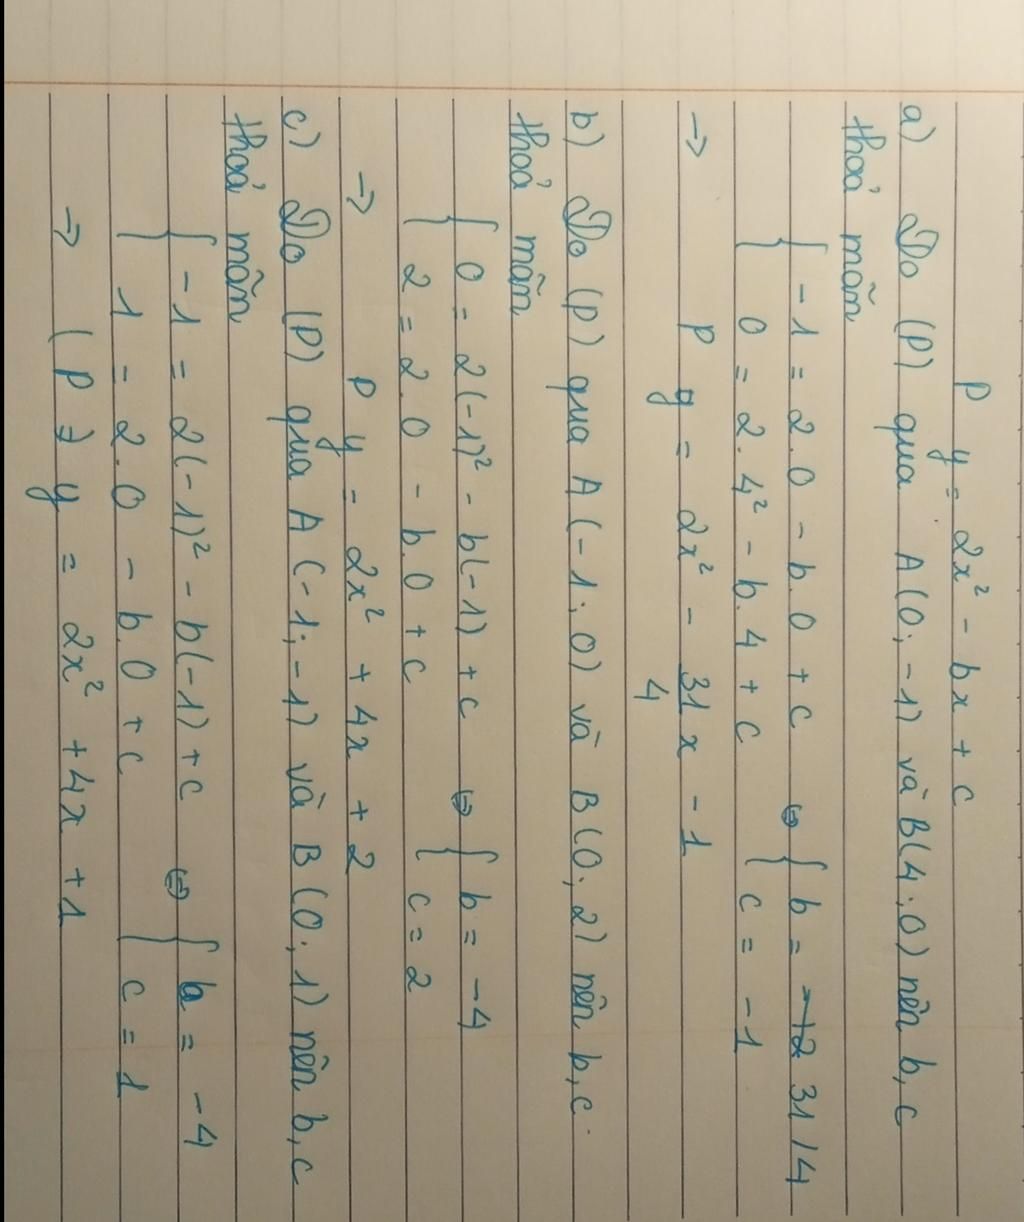 P y = 2x² - bx + c
a) Do (P) qua A(0; -1) và B(4; 0) nên b, c
thoả mãn
{ -1 = 2.0 - b.0 + c ⇔ { b = 31/4
{ 0 = 2.4² - b.4 + c { c = -1
→ P y = 2x² - 31/4 x - 1
b) Do (P) qua A(-1; 0) và B(0; 2) nên b, c
thoả mãn
{ 0 = 2(-1)² - b(-1) + c ⇔ { b = -4
{ 2 = 2.0 - b.0 + c { c = 2
→ P y = 2x² + 4x + 2
c) Do (P) qua A(-1; -1) và B(0; 1) nên b, c
thoả mãn
{ -1 = 2(-1)² - b(-1) + c ⇔ { b = -4
{ 1 = 2.0 - b.0 + c { c = 1
→ (P) y = 2x² + 4x + 1